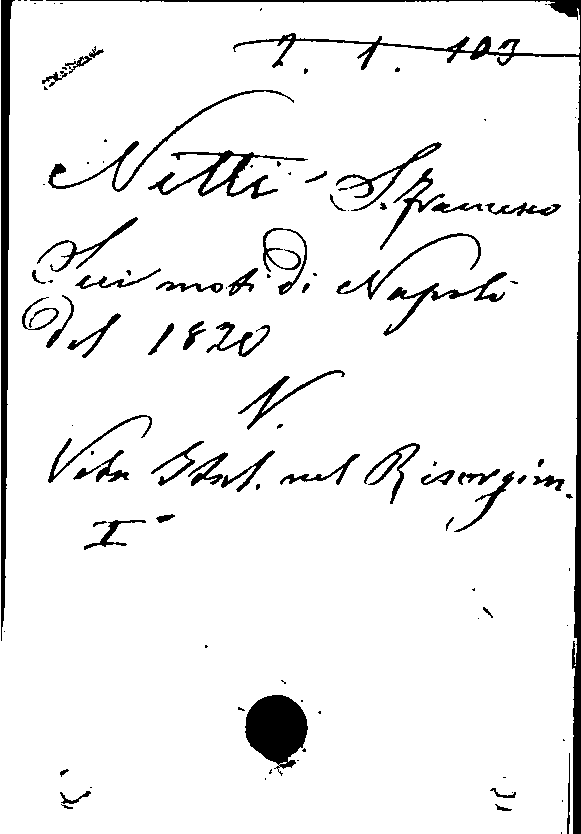 2. 1. 103
Nitti - S. Francesco
Sui moti di Napoli
del 1820
V.
Vita Ital. nel Risorgim.
I°